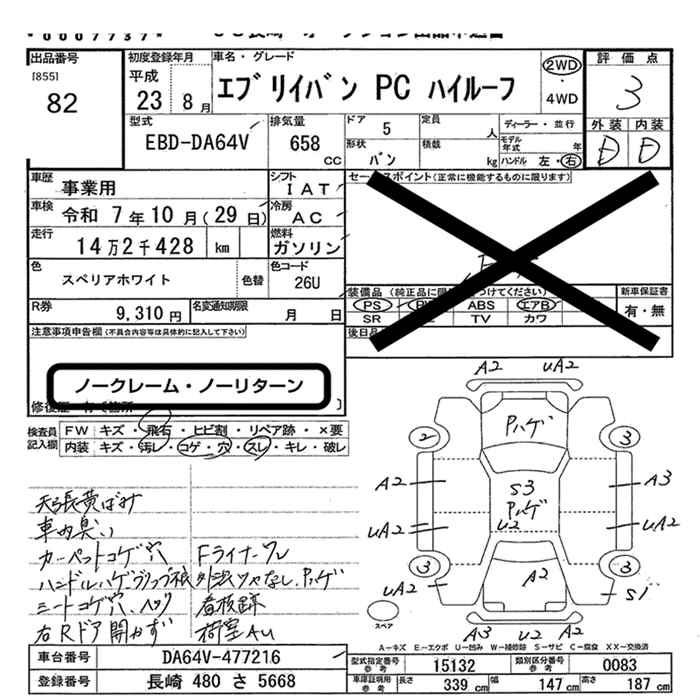 出品番号
[855]
82
初度登録年月
平成
23 8月
車名・グレード
エブリイバン PC ハイルーフ
2WD
4WD
評価点
3
外装 内装
D D
型式
EBD-DA64V
排気量
658
cc
ドア 5
定員 人
形状 バン
積載 kg
ディーラー・並行
モデル年式 年
ハンドル 左・右
車歴 事業用
車検 令和 7年10月(29日)
走行 14万2千428 km
シフト IAT
冷房 AC
燃料 ガソリン
色 スペリアホワイト 色替
色コード 26U
R券 9,310円
名変通知期限 月 日
セールスポイント(正常に機能するものに限ります)
装備品
PS ABS エアB
SR TV カワ
新車保証書
有・無
後日品
注意事項申告欄(不具合内容等は具体的に記入して下さい)
ノークレーム・ノーリターン
検査員記入欄
FW キズ・飛石・ヒビ割・リペア跡・×要
内装 キズ・汚レ・コゲ・穴・スレ・キレ・破レ
天張黄ばみ
車内臭い
カーペットコゲ穴 Fライナーワレ
シートコゲ穴、 看板跡
右Rドア開かず 荷室AU
A2 uA2
Pハゲ
2 3
A2 S3 A3
Pハゲ
uA2 u2 uA2
3 3
uA2 A2 S1
スペア
A3 u2
A-キズ E-エクボ U-凹み W-補修跡 S-サビ C-腐食 XX-交換済
車台番号 DA64V-477216
登録番号 長崎 480 さ 5668
型式指定番号 参考 15132
類別区分番号 参考 0083
車庫証明用 参考 長さ 339 cm 幅 147 cm 高さ 187 cm